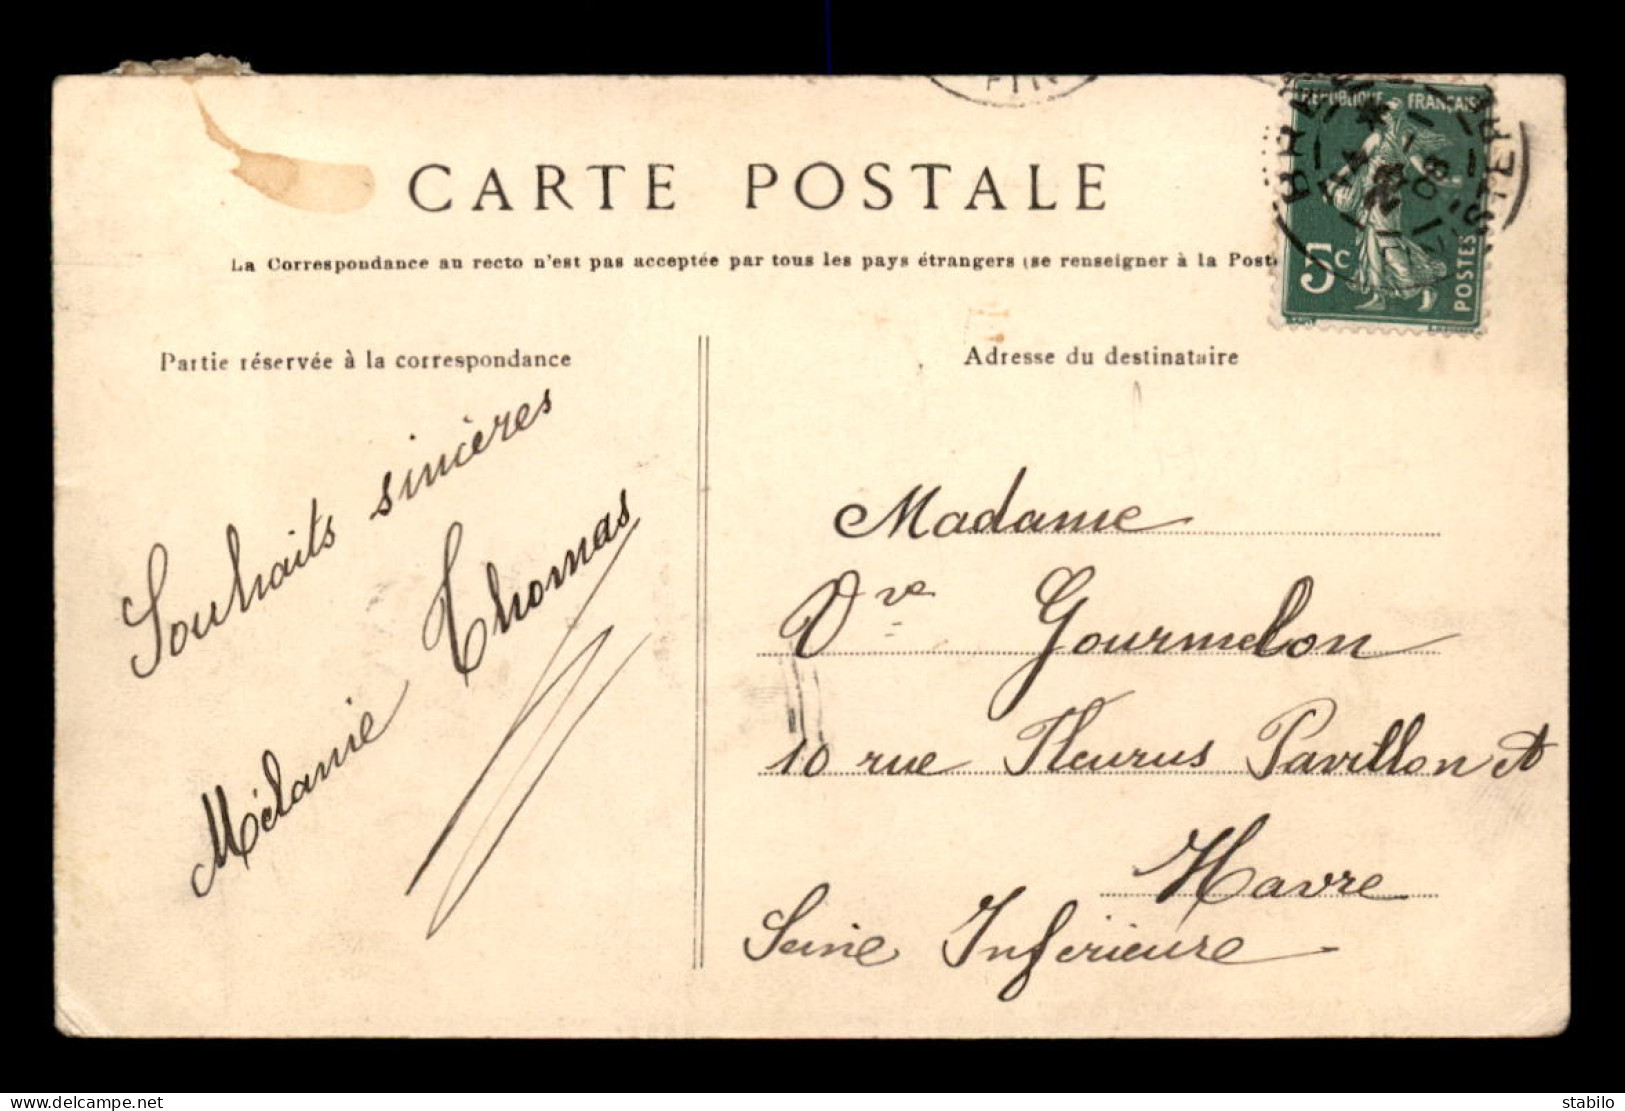 CARTE POSTALE
La Correspondance au recto n'est pas acceptée par tous les pays étrangers (se renseigner à la Poste
RÉPUBLIQUE FRANÇAISE
5c
POSTES
08
Partie réservée à la correspondance
Souhaits sincères
Mélanie Thomas
Adresse du destinataire
Madame
Vve Gourmelon
10 rue Fleurus Pavillon A
Havre
Seine Inferieure
www.delcampe.net
stabilo